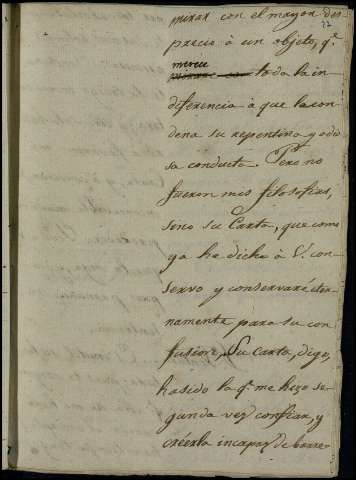 mirar con el mayor des-
27
precio à un objeto, q.e
merece
mirase con toda la in
diferencia à que la con
dena su repentina y odio
sa conducta. Pero no
fueron mis filosofias,
sino su Carta, que como
ya he dicho à V. con
servo y conservaré eter
namente para su con
fusion, Su Carta, digo,
ha sido la q.e me hizo se
gunda vez confiar, y
créerla incapaz de barre-